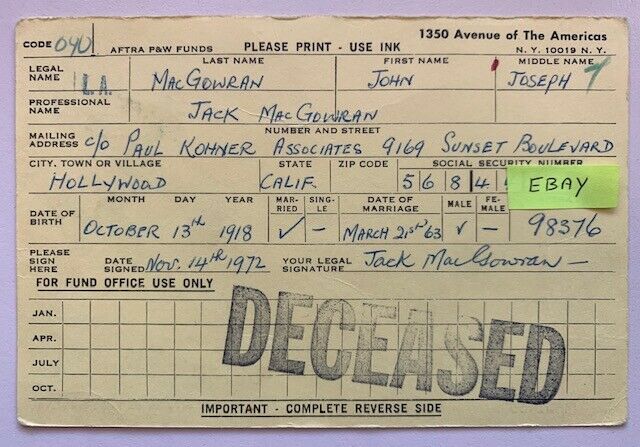 1350 Avenue of The Americas
CODE 040 AFTRA P&W FUNDS PLEASE PRINT - USE INK N.Y. 10019 N.Y.
LEGAL NAME LAST NAME FIRST NAME MIDDLE NAME
L.A. MacGOWRAN JOHN JOSEPH
PROFESSIONAL NAME JACK MacGOWRAN
NUMBER AND STREET
MAILING ADDRESS c/o PAUL KOHNER ASSOCIATES 9169 SUNSET BOULEVARD
CITY, TOWN OR VILLAGE STATE ZIP CODE SOCIAL SECURITY NUMBER
HOLLYWOOD CALIF. 5 6 8 4 EBAY
DATE OF BIRTH MONTH DAY YEAR MARRIED SINGLE DATE OF MARRIAGE MALE FEMALE
OCTOBER 13th 1918 ✓ – MARCH 21st 63 ✓ – 98376
PLEASE SIGN HERE DATE SIGNED Nov. 14th 1972 YOUR LEGAL SIGNATURE Jack MacGowran –
FOR FUND OFFICE USE ONLY
JAN.
APR.
JULY
OCT.
DECEASED
IMPORTANT - COMPLETE REVERSE SIDE